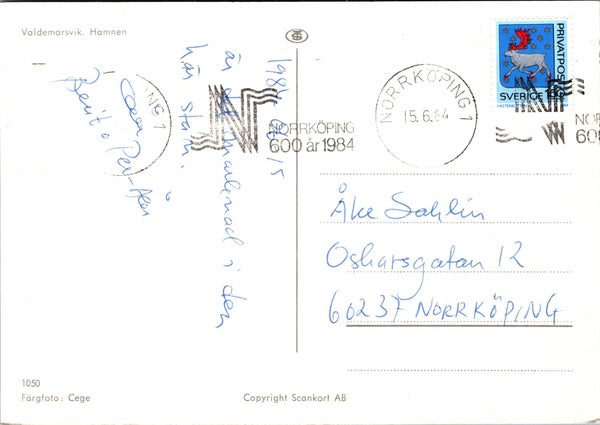 Valdemarsvik. Hamnen
1984 06 15
är det marknad i den
här stan.
Bengt o Per-Åke
NG 1
NORRKÖPING
600 år 1984
NORRKÖPING 1
15.6.84
PRIVATPOST
SVERIGE 1.60
NOR
600
Åke Sahlin
Oskarsgatan 12
60237 NORRKÖPING
1050
Färgfoto: Cege
Copyright Scankort AB